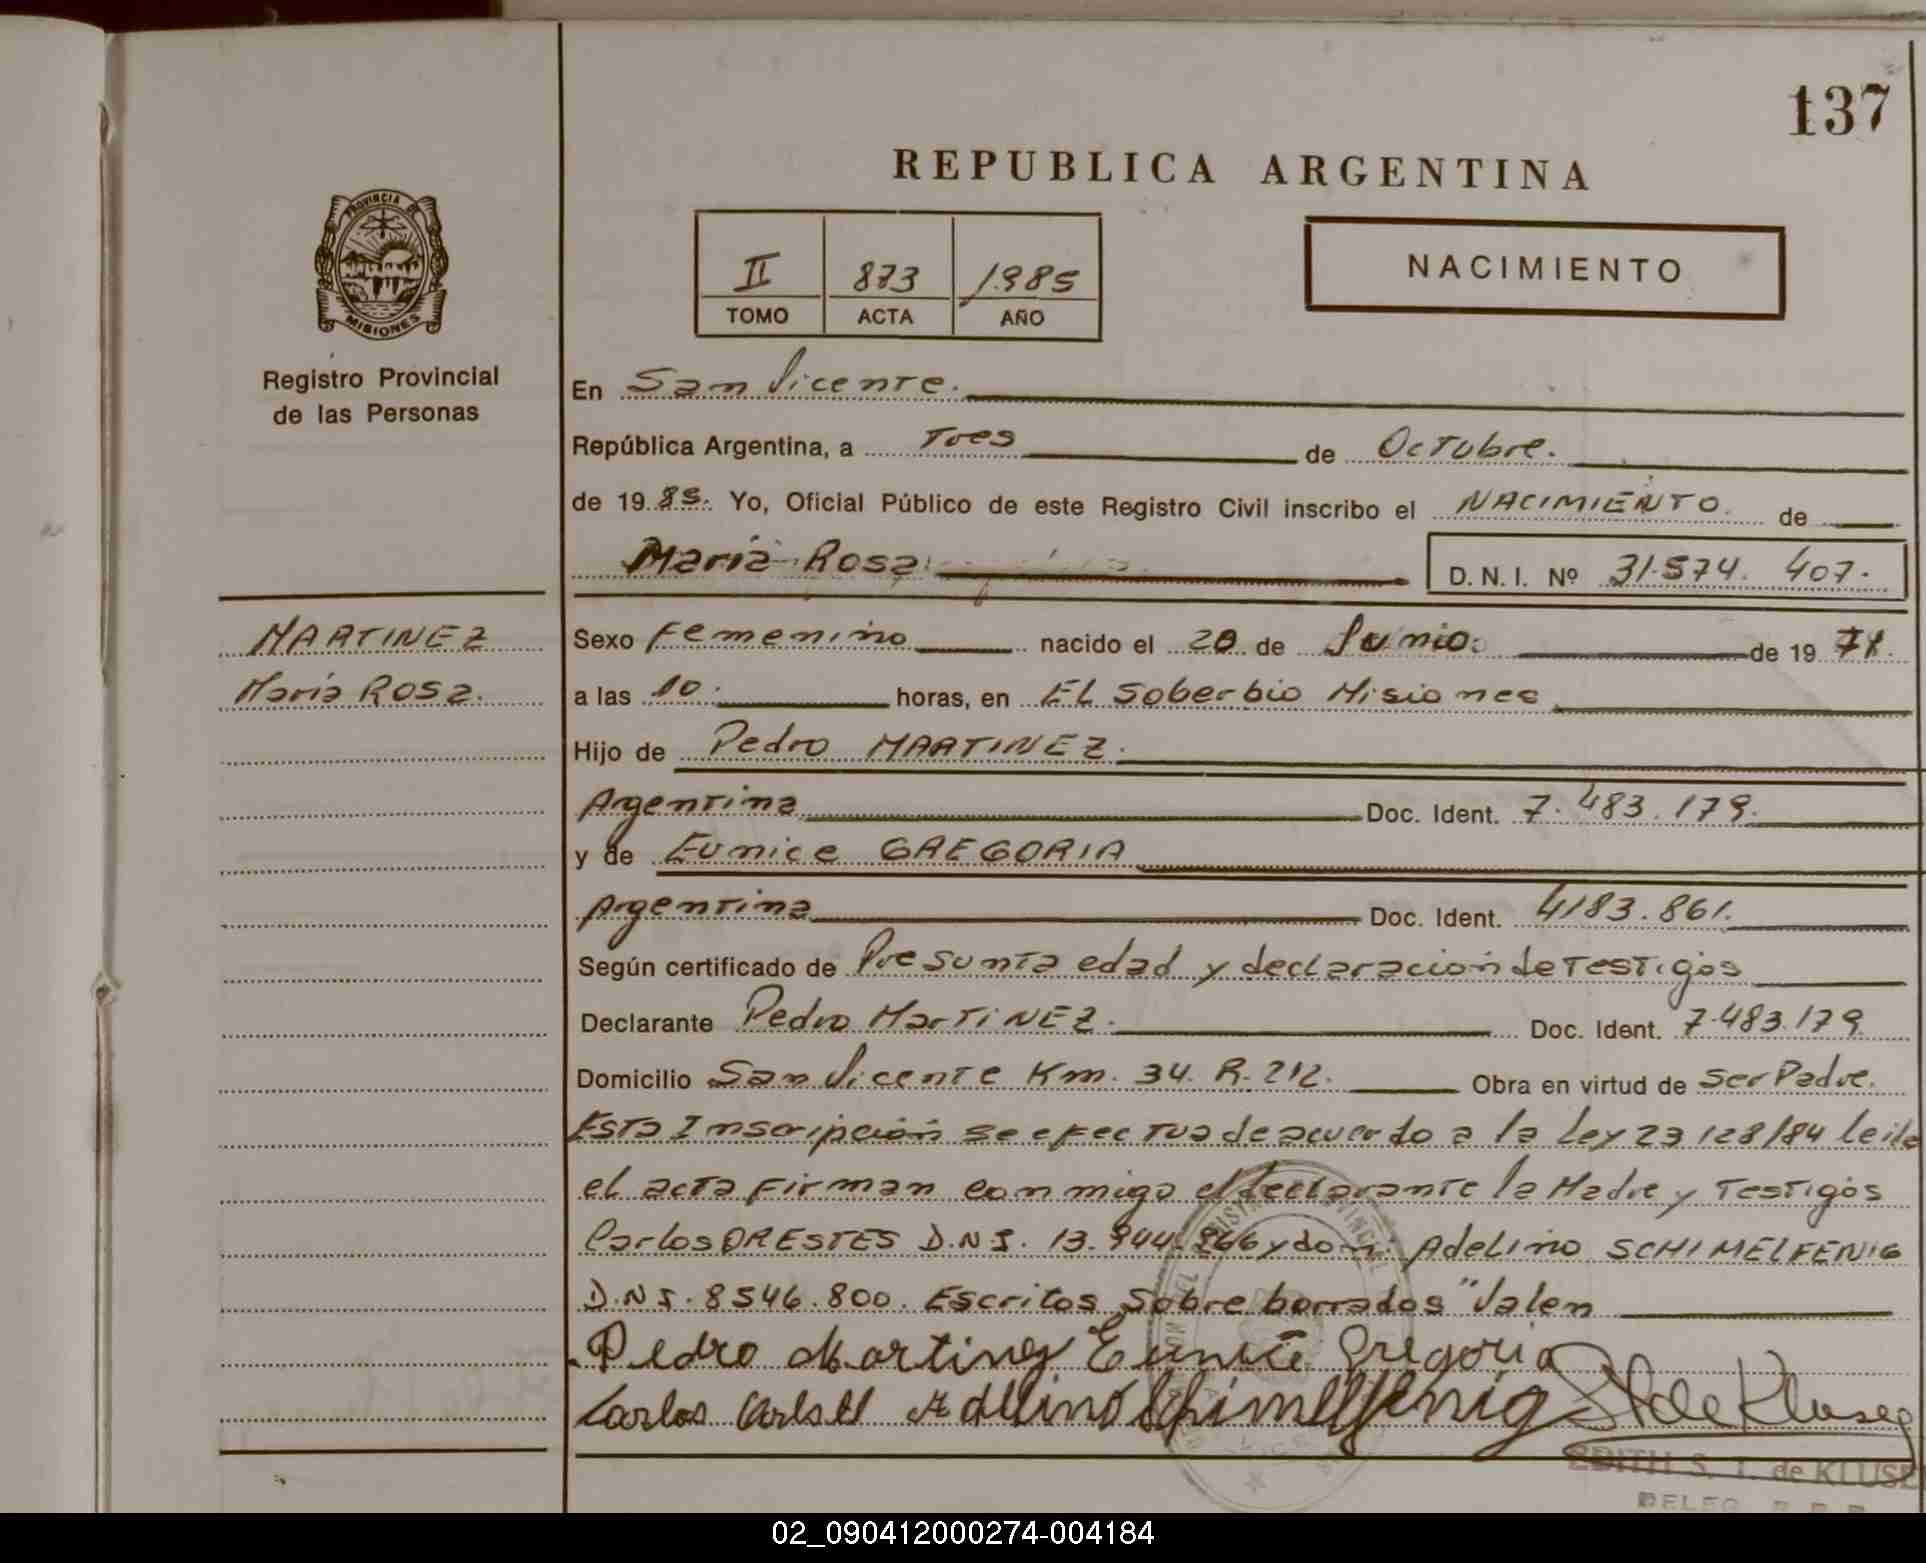 137
REPUBLICA ARGENTINA
PROVINCIA DE
MISIONES
Registro Provincial
de las Personas
II 873 1985
TOMO ACTA AÑO
NACIMIENTO
En San Vicente.
República Argentina, a Tres de Octubre.
de 1985. Yo, Oficial Público de este Registro Civil inscribo el NACIMIENTO. de
María Rosa D. N. I. Nº 31.574. 407.
MARTINEZ
María ROSa.
Sexo Femenino nacido el 20 de Junio. de 19 71.
a las 10. horas, en EL Soberbio Misiones
Hijo de Pedro MARTINEZ.
Argentina Doc. Ident. 7.483.179.
y de Eunice GREGORIA
Argentina Doc. Ident. 4183.861.
Según certificado de Presunta edad y declaración de Testigos
Declarante Pedro MarTiNEZ. Doc. Ident. 7.483.179
Domicilio San Vicente Km. 34. R. 212. Obra en virtud de Ser Padre.
Esta Inscripción se efectua de acuerdo a la Ley 23 128/84 leida
el acta Firman conmigo el declarante la Madre y Testigos
Carlos ORESTES D.N.I. 13.944.966 y don. Adelino SCHIMELFENIG
D.N.I. 8546.800. Escritos Sobre borrados" Valen
Pedro Martinez Eunice Gregoria
Carlos Adelino Schimelfenig
EDITH S. T. de KLUSE
DELEG. R. P. P.
02_090412000274-004184